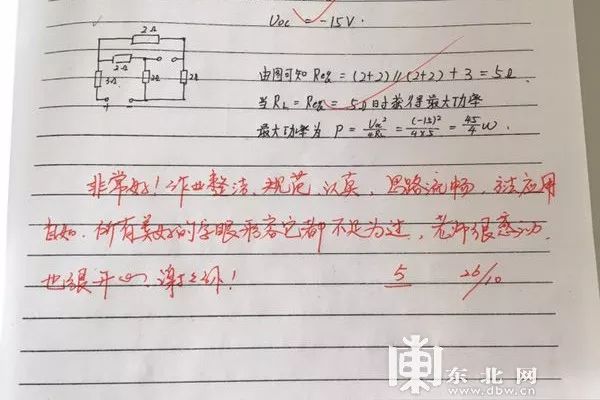 Uoc = -15V.
2Ω
2Ω
3Ω
2Ω
2Ω
由图可知 Req = (2+2)//(2+2) + 3 = 5Ω
当 RL = Req = 5Ω 时获得最大功率
最大功率为 P = Uoc²/4RL = (-15)²/4×5 = 45/4 W.
非常好！作业整洁、规范、认真，思路流畅，方法应用
自如，所有美好的字眼形容它都不足为过，老师很感动
也很开心，谢
5 26/10
东北网
www.dbw.cn